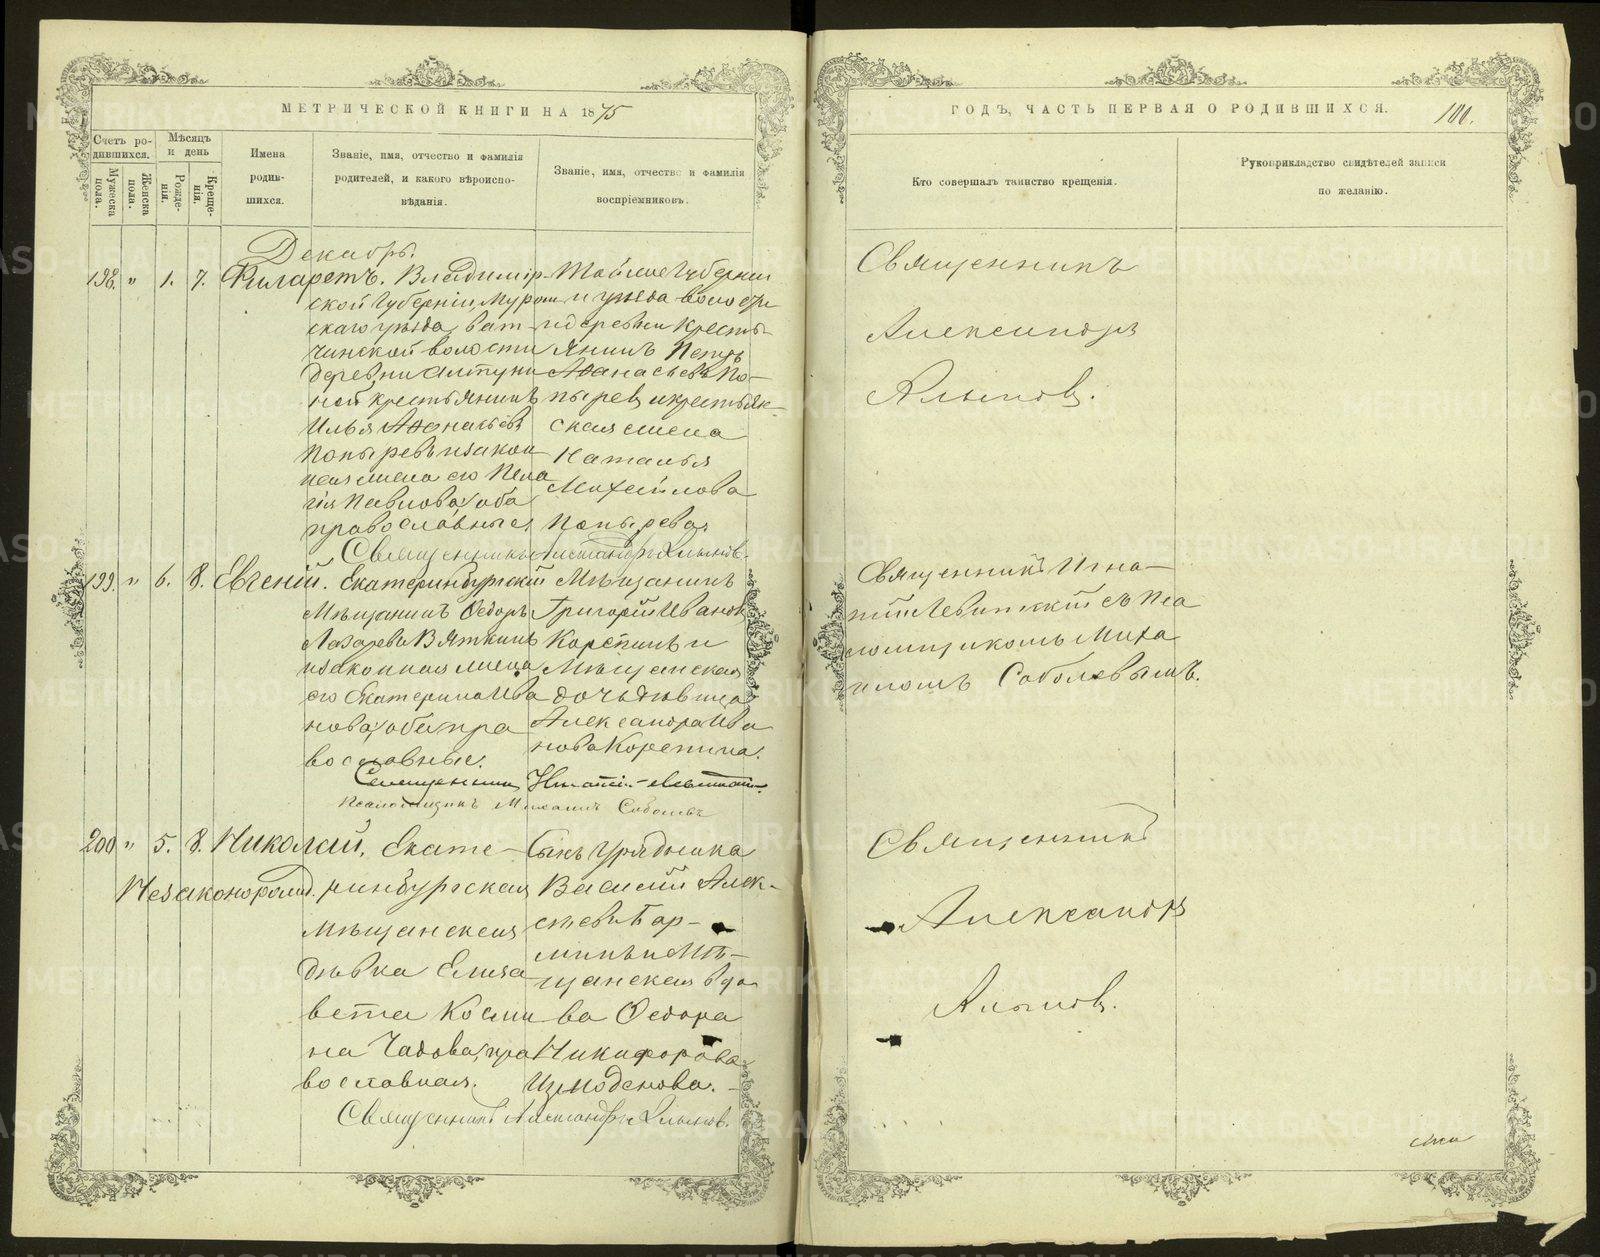 МЕТРИЧЕСКОЙ КНИГИ НА 1875
Счетъ родившихся.
Мужеска пола.
Женска пола.
Мѣсяцъ и день
Рожденія.
Крещенія.
Имена
родив-
шихся.
Званіе, имя, отчество и фамилія
родителей, и какого вѣроиспо-
вѣданія.
Званіе, имя, отчество и фамилія
воспріемниковъ.
Декабрь.
198. " 1. 7. Филаретъ.
Владимір-
ской Губерніи, Муром-
скаго уѣзда, Ват-
чинской волости
деревни
ной крестьянинъ
Илья Аѳонасьевъ
Попыревъ и закон-
ная жена его Пела
гія Павлова, оба
православные
Той же Губерніи
и уѣзда волости
и деревни кресть-
янинъ Петръ
Аѳанасьевъ По-
пыревъ и крестьян-
ская жена
Наталья
Михайлова
Попырева
Священникъ Александръ
199. " 6. 8. Евгеній.
Екатеринбургскій
Мѣщанинъ Ѳедоръ
Лазаревъ Вяткинъ
и законная жена
его Екатерина Ива
нова, оба пра
вославные.
Мѣщанинъ
Григорій Ивановъ
Корепинъ и
Мѣщанская
дочь дѣвица
Александра Ива
нова Корепина.
Священникъ Игнатій Левитскій.
Псаломщикъ Михаилъ Соболевъ
200 " 5. 8. Николай.
Незаконорожд.
Екате-
ринбургская
мѣщанская
дѣвка Елиза
вета Косми
на Чадова, пра
вославная.
Сынъ Урядника
Василій Алек-
сѣевъ Бар-
минъ и Мѣ-
щанская вдо
ва Ѳедора
Никифорова
Измоденова.
Священникъ Александръ
ГОДЪ, ЧАСТЬ ПЕРВАЯ О РОДИВШИХСЯ.
100.
Кто совершалъ таинство крещенія.
Рукоприкладство свидѣтелей записи
по желанію.
Священникъ
Александръ
Священникъ Игна-
тій Левитскій съ Пса
ломщикомъ Миха
иломъ Соболевымъ.
Священникъ
Александръ